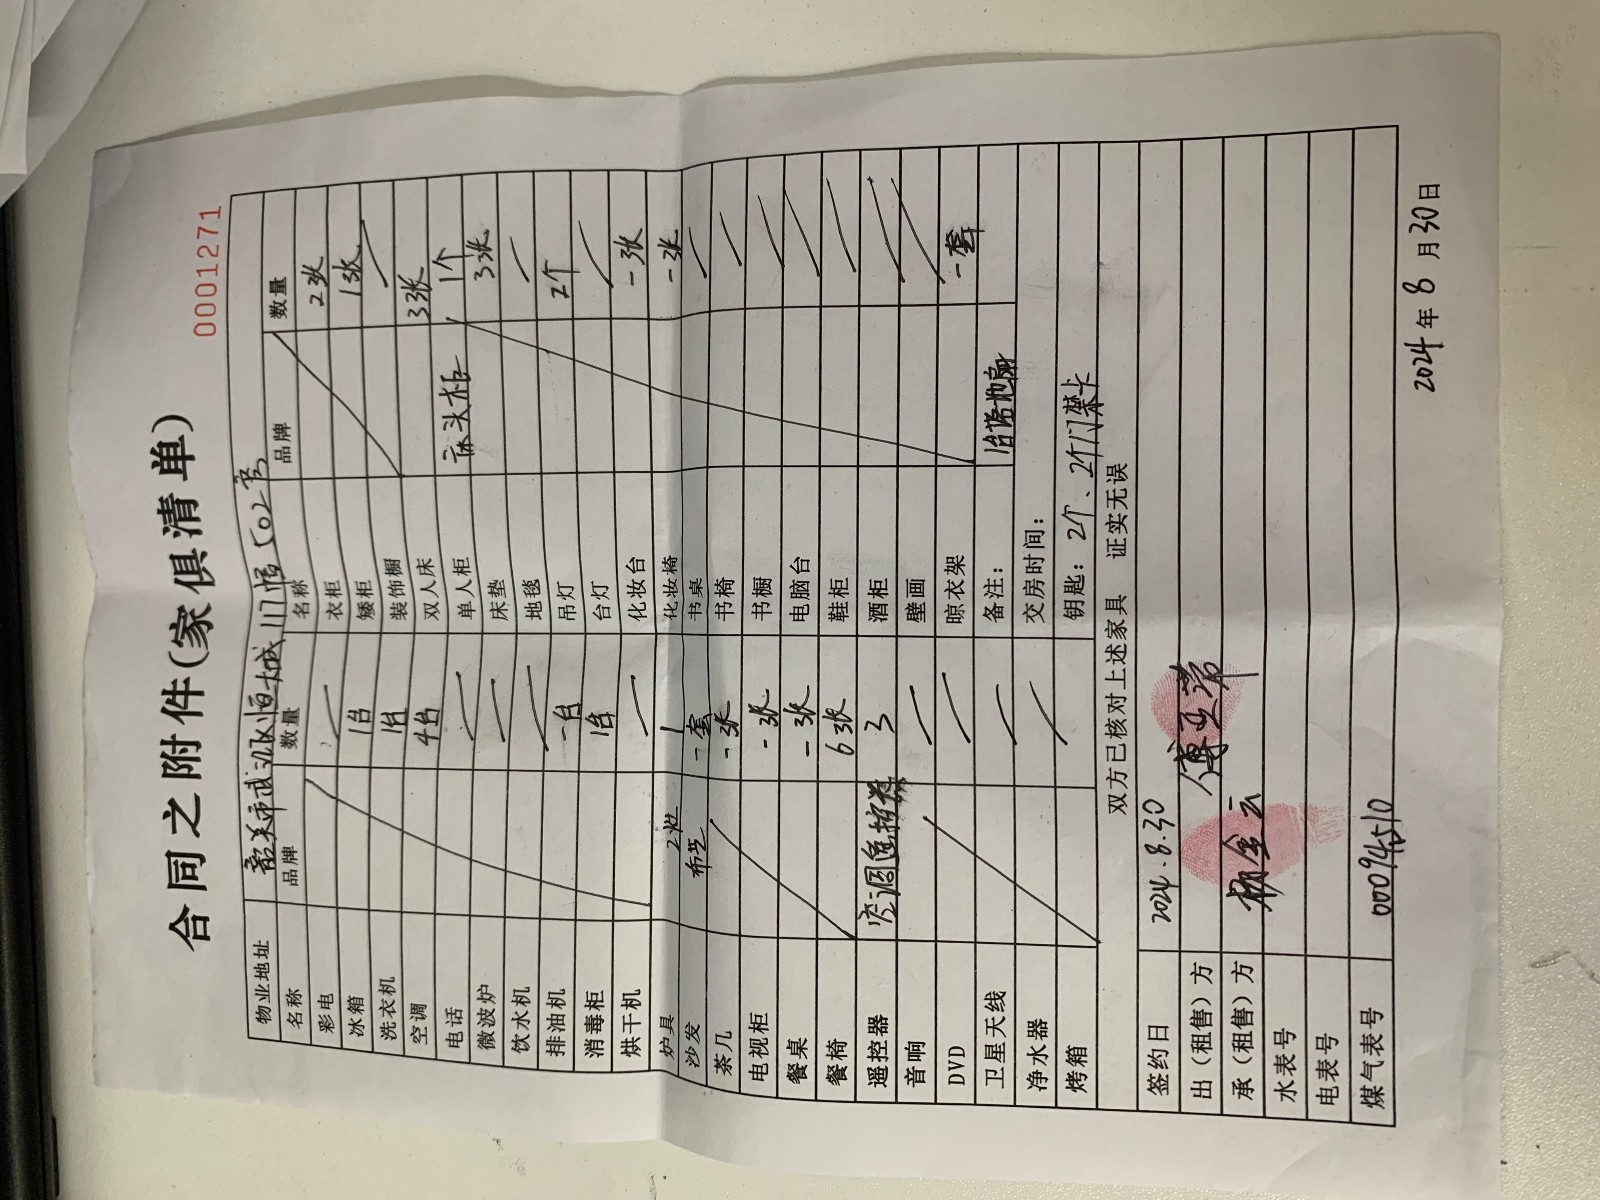 0001271
合同之附件(家俱清单)
物业地址 韶关市武江区恒大城11门幢502房
名称 品牌 数量 名称 品牌 数量
彩电 衣柜 2张
冰箱 1台 矮柜 1张
洗衣机 1台 装饰橱
空调 4台 双人床 3张
电话 单人柜 床头柜 1个
微波炉 床垫 3张
饮水机 地毯
排油机 一台 吊灯 2个
消毒柜 1台 台灯
烘干机 化妆台 一张
炉具 2灶 1 化妆椅 一张
沙发 布艺 一套 书桌
茶几 一张 书椅
电视柜 一张 书橱
餐桌 一张 电脑台
餐椅 6张 鞋柜
遥控器 空调遥控器 3 酒柜
音响 壁画
DVD 晾衣架 一套
卫星天线 备注:
净水器 交房时间:
烤箱 钥匙: 2个、2个门禁卡
双方已核对上述家具 证实无误
签约日 2024.8.30
出(租售)方
承(租售)方
水表号
电表号
煤气表号 00094510
2024年8月30日